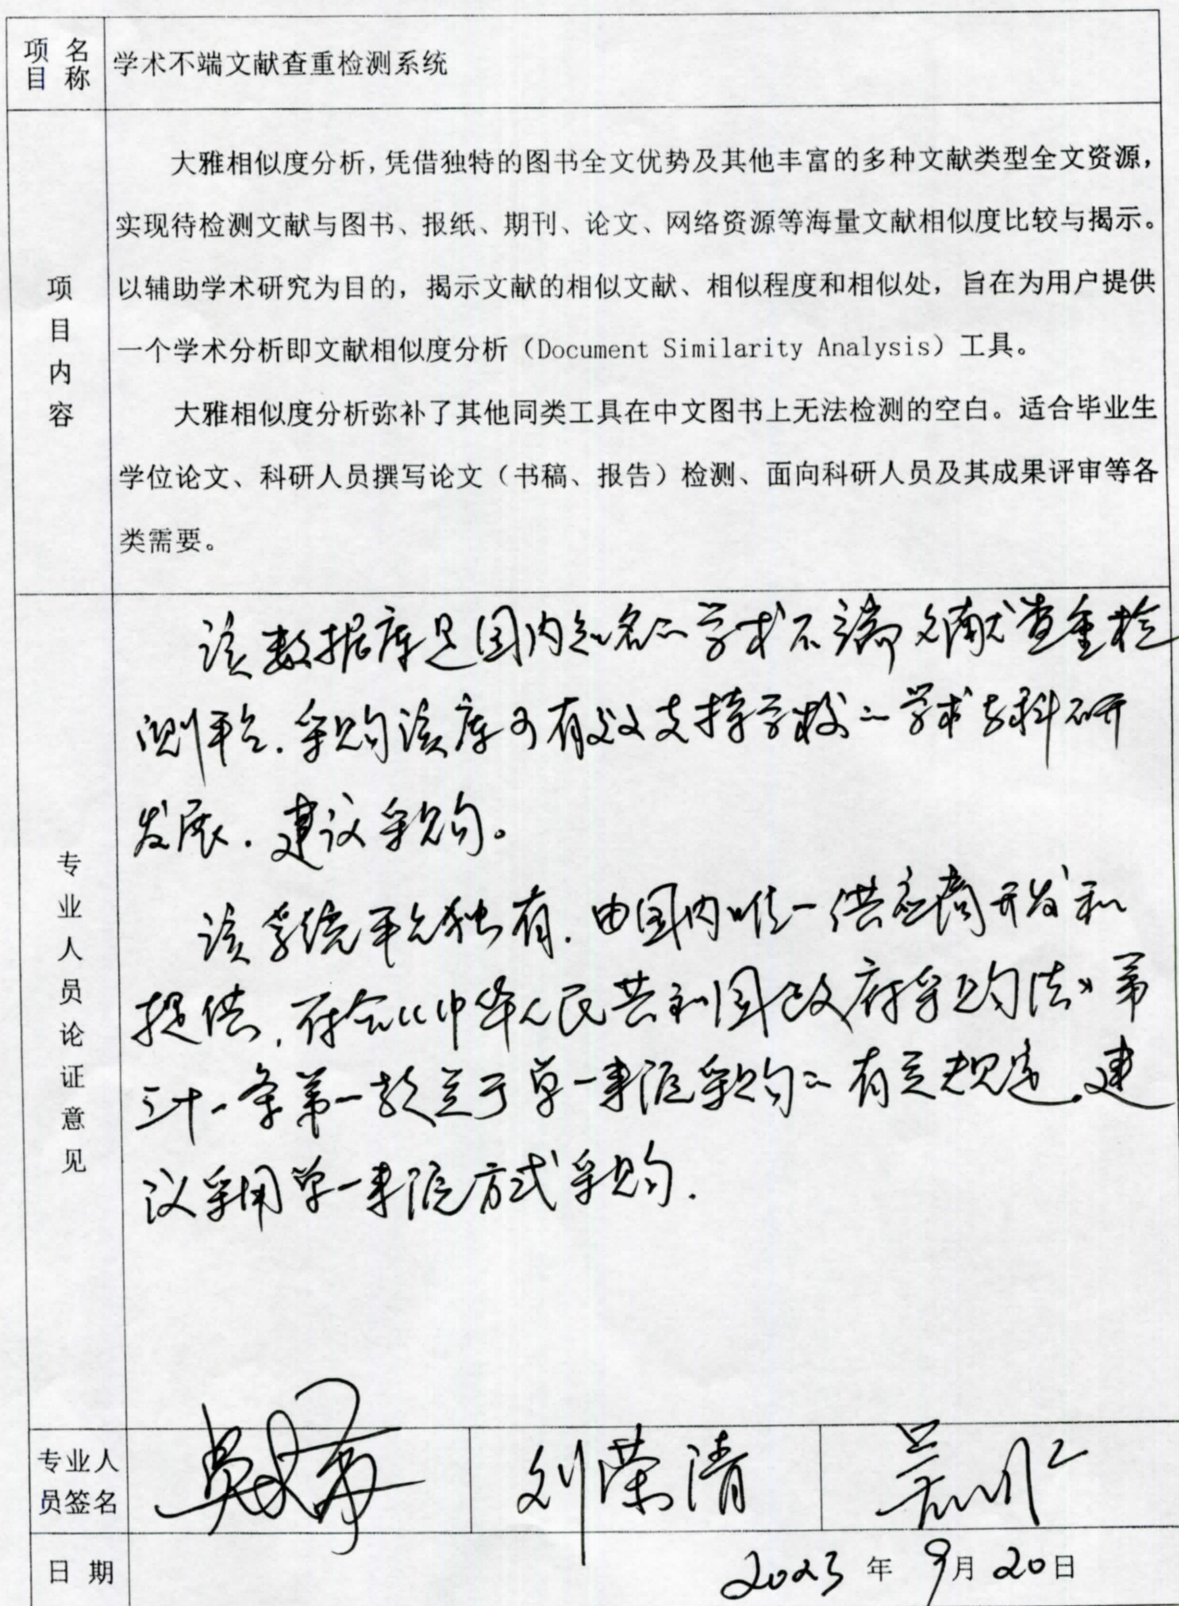 项目名称
学术不端文献查重检测系统
项目内容
大雅相似度分析，凭借独特的图书全文优势及其他丰富的多种文献类型全文资源，
实现待检测文献与图书、报纸、期刊、论文、网络资源等海量文献相似度比较与揭示。
以辅助学术研究为目的，揭示文献的相似文献、相似程度和相似处，旨在为用户提供
一个学术分析即文献相似度分析（Document Similarity Analysis）工具。
大雅相似度分析弥补了其他同类工具在中文图书上无法检测的空白。适合毕业生
学位论文、科研人员撰写论文（书稿、报告）检测、面向科研人员及其成果评审等各
类需要。
专业人员论证意见
该数据库是国内知名的学术不端文献查重检
测平台.采购该库可有效支持学校的学术与科研
发展.建议采购。
该系统平台独有.由国内唯一供应商开发和
提供,符合《中华人民共和国政府采购法》第
三十一条第一款关于单一来源采购的有关规定.建
议采用单一来源方式采购.
专业人员签名
刘荣清
日期
2023年9月20日